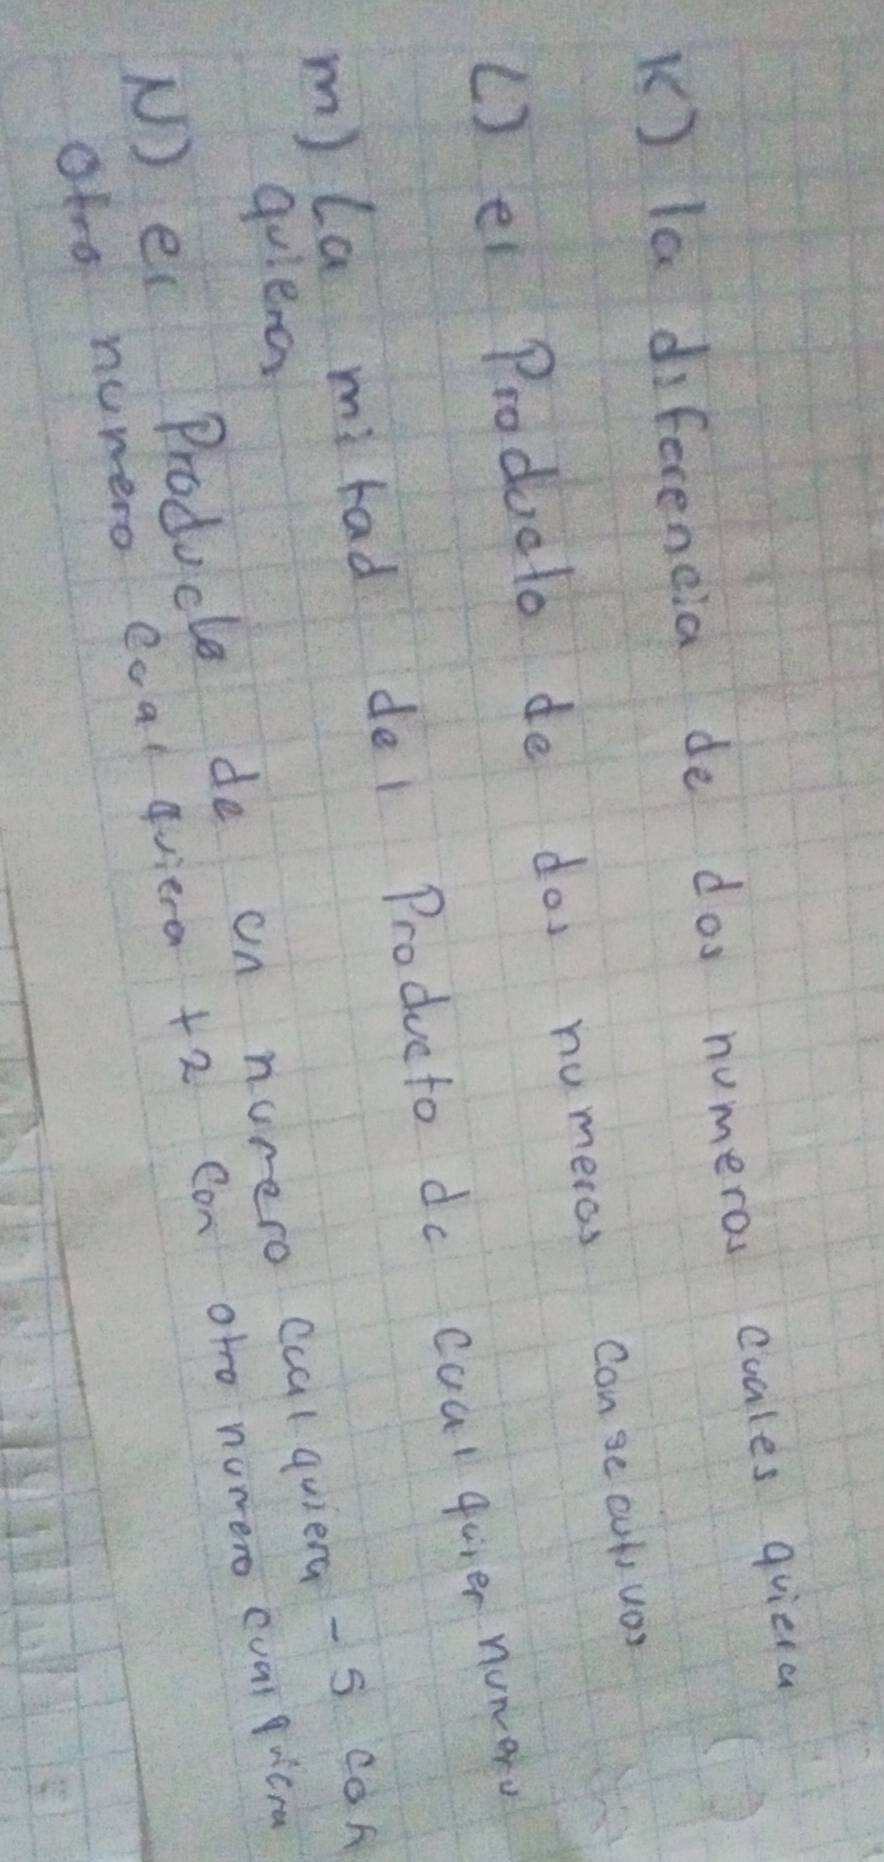 K) la diferencia de dos numeros cuales quiera
L) el Producto de dos numeros consecutivos
m) La mitad del Producto de cual quier numero
quiera
N) el Producto de un numero cual quiera - 5 con
otro numero cual quiera + 2 con otro numero cual quiera